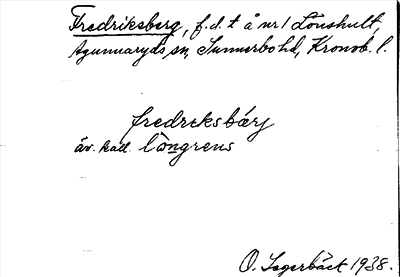 Fredriksberg, f.d. t å nr 1 Lönshult,
Agunnaryds sn, Sunnerbo hd, Kronob. l.
fredreksbárj
äv. kall. lòngrens
O. Lagerbäck 1938.